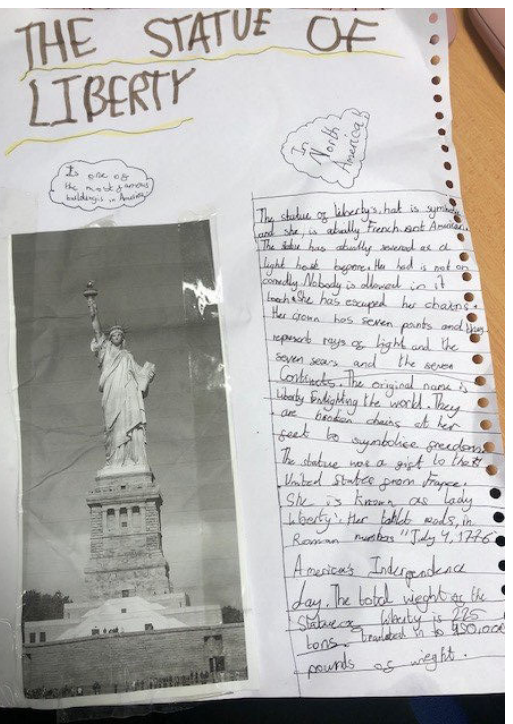 THE STATUE OF
LIBERTY
Its one of
the most famous
buildings in America
In
North
America!!
The statue of liberty's hat is symbolic
and she is actually French not American
The statue has actually severed as a
light house before. Her had is not on
Nobody is allowed in it
She has escaped her chains.
Her crown has seven points and they
represent rays of light and the
seven sears and the seven
Continets. The original name is
liberty Enlighting the world. They
are broken chains at her
feet to symbolise freedom.
The statue was a gift to the
United States from France.
She is known as lady
liberty. Her tablet reads, in
Roman "July 4, 1776"
America's Independence
day. The total weght of the
Statue of liberty is 225
tons. in to 450,000
pounds of wieght.